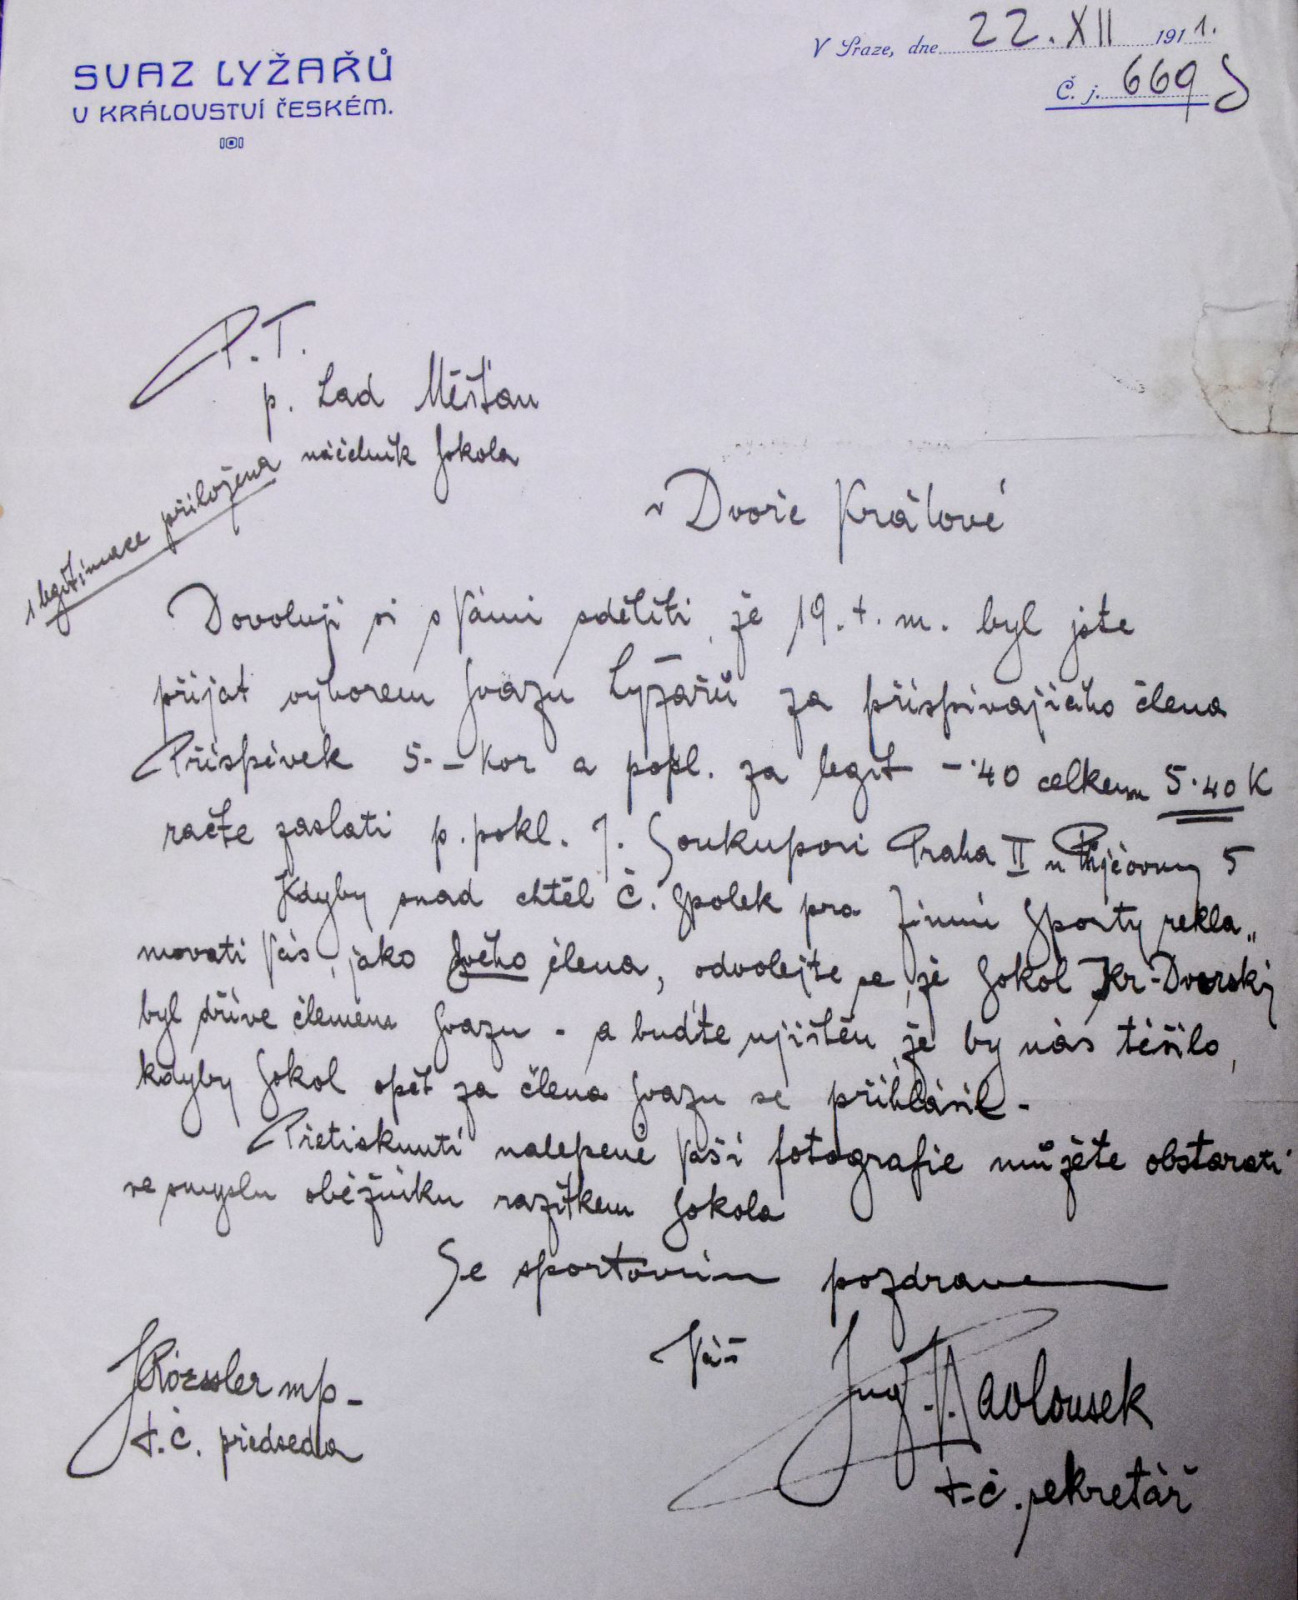 SVAZ LYŽAŘŮ
V KRÁLOVSTVÍ ČESKÉM.
V Praze, dne 22. XII 1911.
Č. j. 669
P. T.
p. Lad Měšťan
náčelník Sokola
1 legitimace přiložena
v Dvoře Králové
Dovoluji si s Vámi sděliti, že 19. t. m. byl jste
přijat výborem Svazu Lyžařů za přispívajícího člena
Příspěvek 5.- Kor a popl. za legit -·40 celkem 5·40 K
račte zaslati p. pokl. J. Soukupovi Praha II u Půjčovny 5
Kdyby snad chtěl Č. Spolek pro Zimní Sporty rekla„
movati Vás, jako svého člena, odvolejte se, že Sokol Kr-Dvorský
byl dříve členem Svazu - a buďte ujištěn, že by nás těšilo,
kdyby Sokol opět za člena Svazu se přihlásil -
Přetisknutí nalepené Vaší fotografie můžete obstarati
ve smyslu oběžníku razítkem Sokola
Se sportovním pozdravem
Váš
Rössler mp -
t. č. předseda
Ing. Pavlousek
t. č. sekretář